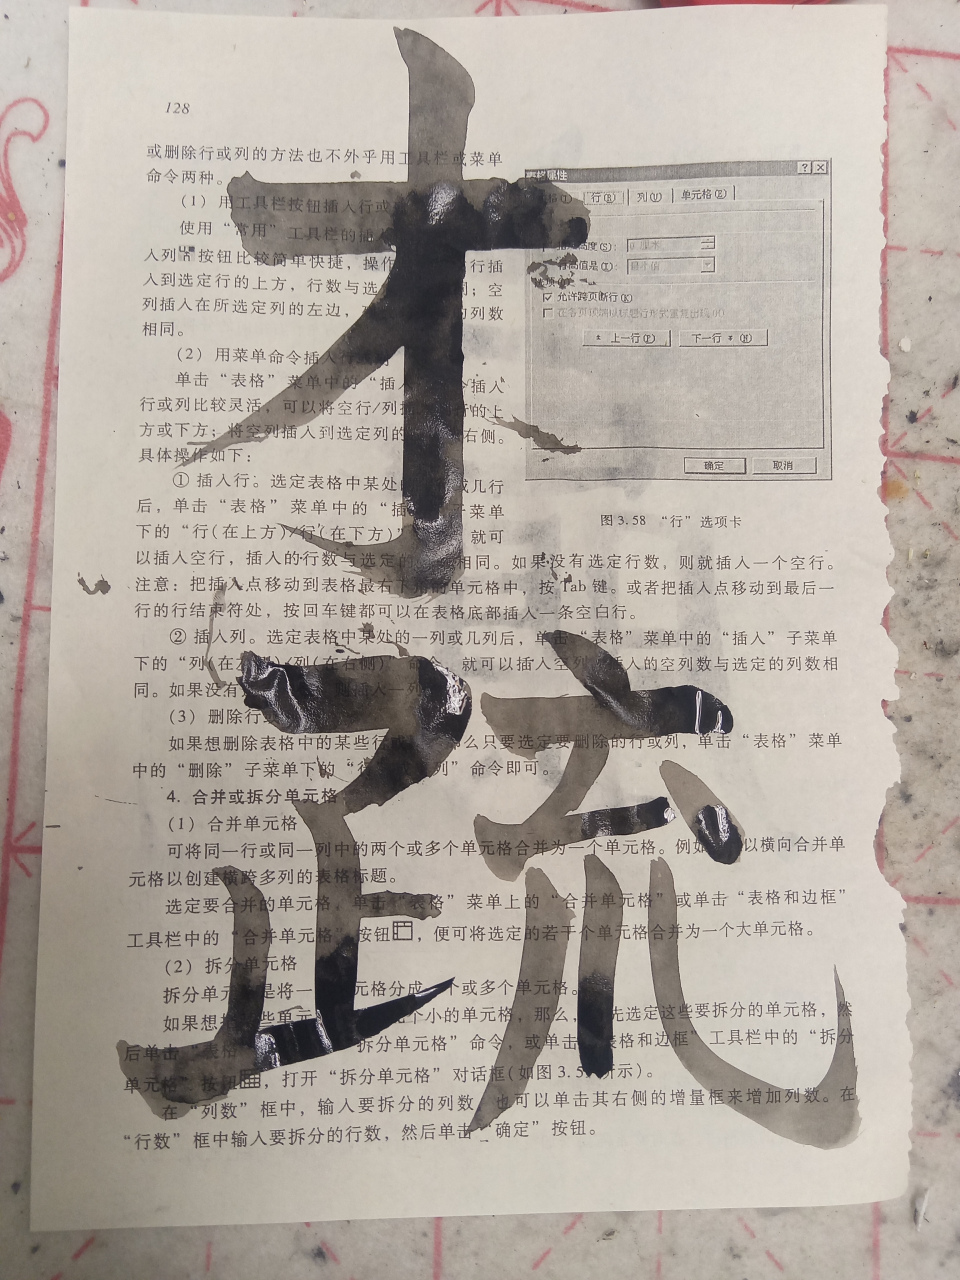 128
或删除行或列的方法也不外乎用工具栏或菜单
命令两种。
(1) 用工具栏按钮插入行或
使用“常用”工具栏的插
入列 按钮比较简单快捷，操作 行插
入到选定行的上方，行数与选 ；空
列插入在所选定列的左边， 的列数
相同。
(2) 用菜单命令插入
单击“表格”菜单中的“插入 令插入
行或列比较灵活，可以将空行/列 行的上
方或下方；将空列插入到选定列的 右侧。
具体操作如下：
① 插入行。选定表格中某处 或几行
后，单击“表格”菜单中的“插 子菜单
下的“行(在上方)/行(在下方)” 就可
以插入空行，插入的行数与选定的 相同。如果没有选定行数，则就插入一个空行。
注意：把插入点移动到表格最右下角的单元格中，按 Tab 键。或者把插入点移动到最后一
行的行结束符处，按回车键都可以在表格底部插入一条空白行。
② 插入列。选定表格中某处的一列或几列后，单击“表格”菜单中的“插入”子菜单
下的“列(在左 )/列(在右侧)”命令，就可以插入空列， 入的空列数与选定的列数相
同。如果没有 则插入一列
(3) 删除行
如果想删除表格中的某些行 那么只要选定要删除的行或列，单击“表格”菜单
中的“删除”子菜单下的“行 列”命令即可。
4. 合并或拆分单元格
(1) 合并单元格
可将同一行或同一列中的两个或多个单元格合并为一个单元格。例如 以横向合并单
元格以创建横跨多列的表格标题。
选定要合并的单元格，单击“表格”菜单上的“合并单元格”或单击“表格和边框”
工具栏中的“合并单元格”按钮 ，便可将选定的若干个单元格合并为一个大单元格。
(2) 拆分单元格
拆分单元 是将一 元格分成 个或多个单元格。
如果想 些单元 个小的单元格，那么， 先选定这些要拆分的单元格，然
后单击“表格 拆分单元格”命令，或单击 表格和边框”工具栏中的“拆分
单元格”按钮 ，打开“拆分单元格”对话框(如图 3.5 所示)。
在“列数”框中，输入要拆分的列数 也可以单击其右侧的增量框来增加列数。在
“行数”框中输入要拆分的行数，然后单击“确定”按钮。
表格属性
行(R) 列(U) 单元格(E)
高度(S):
行高值是(I):
允许跨页断行(K)
上一行(P) 下一行(N)
确定 取消
图 3.58 “行”选项卡
才
疏